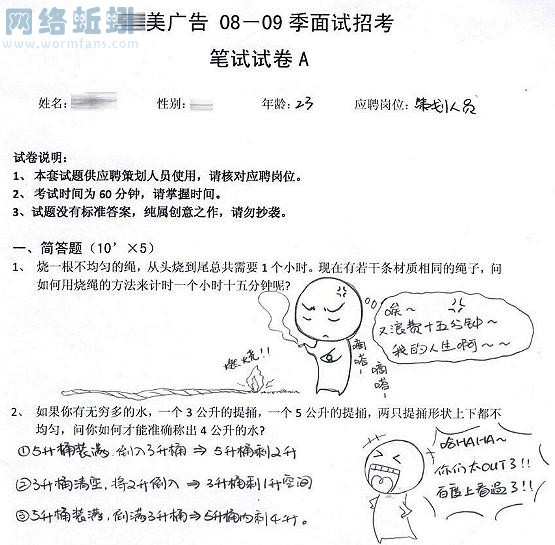 网络蚯蚓
www.wormfans.com
美广告 08－09 季面试招考
笔试试卷 A
姓名： 性别： 年龄：23 应聘岗位：策划人员
试卷说明：
1、 本套试题供应聘策划人员使用，请核对应聘岗位。
2、 考试时间为 60 分钟，请掌握时间。
3、试题没有标准答案，纯属创意之作，请勿抄袭。
一、简答题（10’×5）
1、 烧一根不均匀的绳，从头烧到尾总共需要 1 个小时。现在有若干条材质相同的绳子，问
如何用烧绳的方法来计时一个小时十五分钟呢？
唉～
又浪费十五分钟～
我的人生啊～～
嘀嗒～
嘀嗒～
燃烧!!
2、 如果你有无穷多的水，一个 3 公升的提捅，一个 5 公升的提捅，两只提捅形状上下都不
均匀，问你如何才能准确称出 4 公升的水？
①5升桶装满，倒入3升桶⇒5升桶剩2升
②3升桶清空，将2升倒入⇒3升桶剩1升空间
③5升桶装满，倒满3升桶⇒5升桶内剩4升。
哈HAHA～
你们太OUT了!!
百度上看过了!!